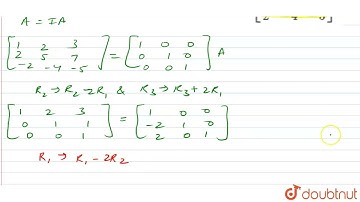 A = IA
[1 2 3; 2 5 7; -2 -4 -5] = [1 0 0; 0 1 0; 0 0 1] A
R2 → R2 - 2R1 & R3 → R3 + 2R1
[1 2 3; 0 1 1; 0 0 1] = [1 0 0; -2 1 0; 2 0 1]
R1 → R1 - 2R2
doubtnut